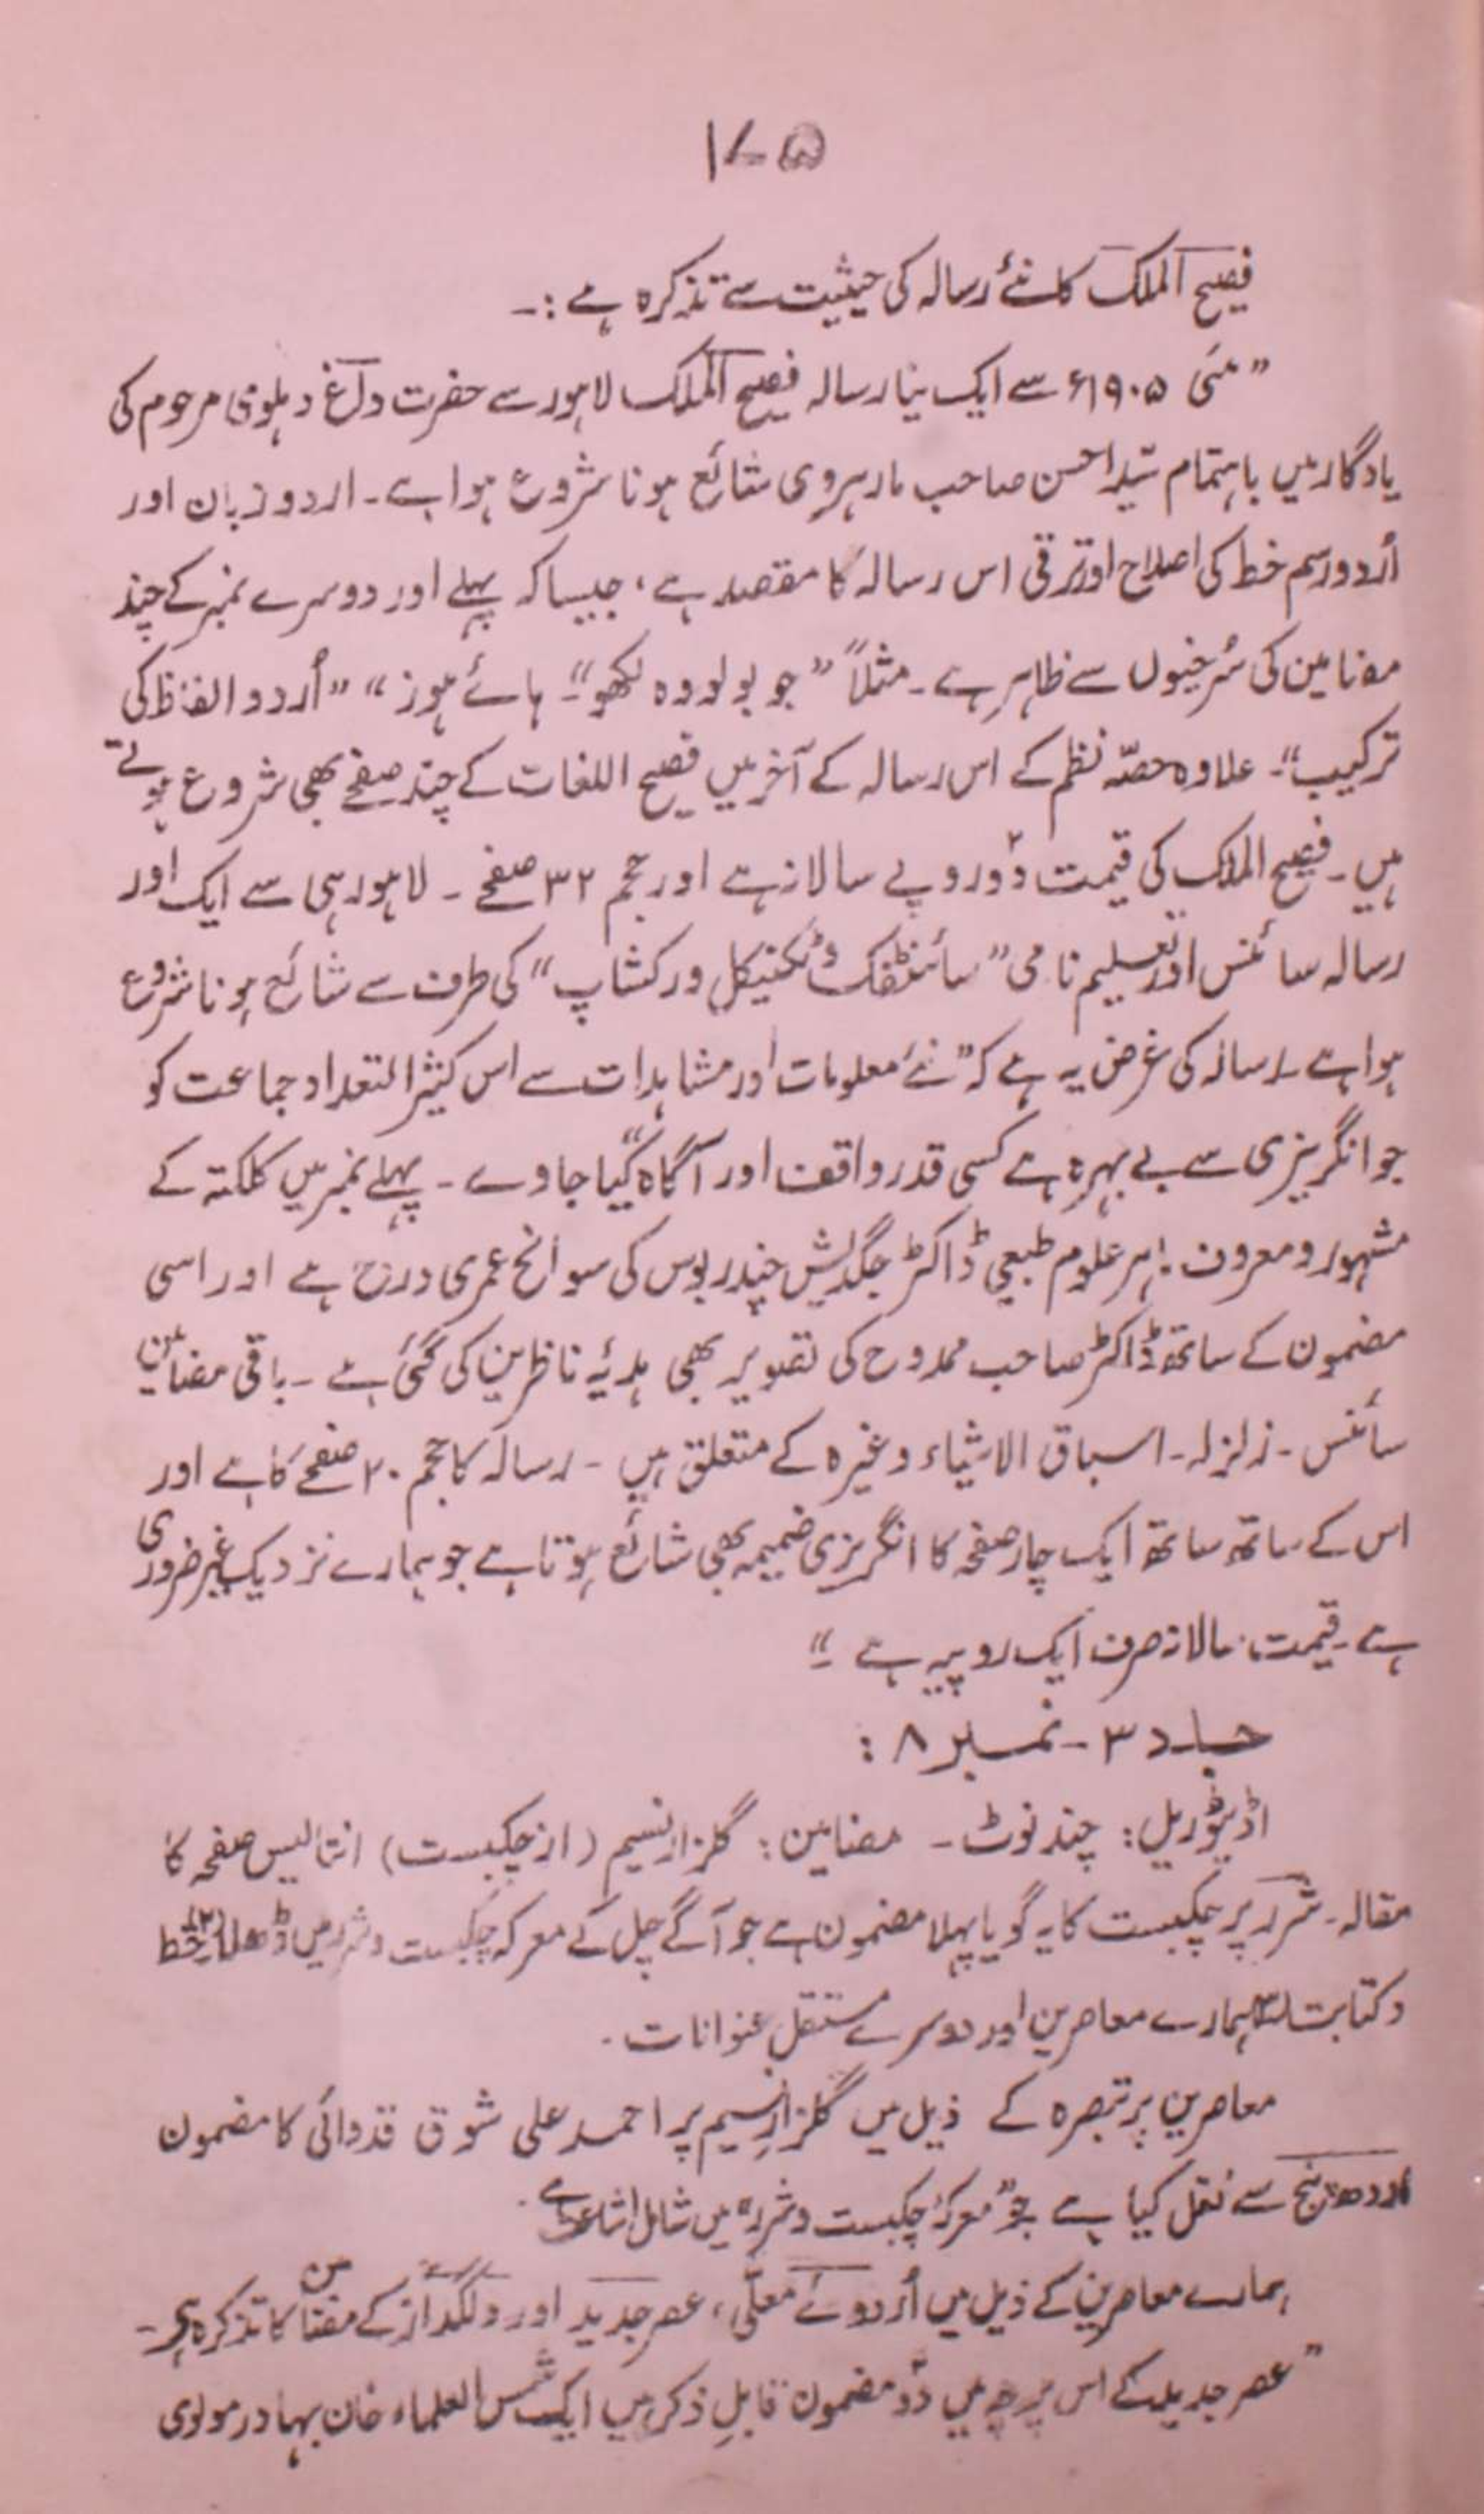 ۱۷۵
فصیح الملک کا نئے رسالہ کی حیثیت سے تذکرہ ہے :-
”مئی ۱۹۰۵ء سے ایک نیا رسالہ فصیح الملک لاہور سے حضرت داغ دہلوی مرحوم کی
یادگار میں باہتمام سید احسن صاحب مارہروی شائع ہونا شروع ہوا ہے۔ اردو زبان اور
اُردو رسم خط کی اصلاح اور ترقی اس رسالہ کا مقصد ہے، جیسا کہ پہلے اور دوسرے نمبر کے چند
مضامین کی سُرخیوں سے ظاہر ہے۔ مثلاً ”جو بولو وہ لکھو“۔ ہائے ہوز“ ”اُردو الفاظ کی
ترکیب“۔ علاوہ حصّہ نظم کے اس رسالہ کے آخر میں فصیح اللغات کے چند صفحے بھی شروع ہوئے
ہیں۔ فصیح الملک کی قیمت دو روپے سالانہ ہے اور حجم ۳۲ صفحے۔ لاہور ہی سے ایک اور
رسالہ سائنس اور تعلیم نامی ”سائنٹفک و ٹکنیکل ورکشاپ“ کی طرف سے شائع ہونا شروع
ہوا ہے۔ رسالہ کی غرض یہ ہے کہ ”نئے معلومات اور مشاہدات سے اس کثیر التعداد جماعت کو
جو انگریزی سے بے بہرہ ہے کسی قدر واقف اور آگاہ کیا جاوے“۔ پہلے نمبر میں کلکتہ کے
مشہور و معروف ماہر علوم طبعی ڈاکٹر جگدیش چندر بوس کی سوانح عمری درج ہے اور اسی
مضمون کے ساتھ ڈاکٹر صاحب ممدوح کی تصویر بھی ہدیۂ ناظرین کی گئی ہے۔ باقی مضامین
سائنس۔ زلزلہ۔ اسباق الاشیاء وغیرہ کے متعلق ہیں۔ رسالہ کا حجم ۲۰ صفحے کا ہے اور
اس کے ساتھ ساتھ ایک چار صفحہ کا انگریزی ضمیمہ بھی شائع ہوتا ہے جو ہمارے نزدیک غیر ضروری
ہے۔ قیمت سالانہ صرف ایک روپیہ ہے“۔
جلد ۳ - نمبر ۸ :
اڈیٹوریل: چند نوٹ۔ مضامین: گلزار نسیم (از چکبست) انتالیس صفحہ کا
مقالہ۔ شرر پر چکبست کا یہ گویا پہلا مضمون ہے جو آگے چل کے معرکہ چکبست و شرر میں ڈھلا۔ خط
و کتابت ہمارے معاصرین اور دوسرے مستقل عنوانات۔
معاصرین پر تبصرہ کے ذیل میں گلزار نسیم پر احمد علی شوق قدوائی کا مضمون
اودھ پنچ سے نقل کیا ہے جو ”معرکۂ چکبست و شرر“ میں شامل اشاعت ہے۔
ہمارے معاصرین کے ذیل میں اُردوئے معلّی، عصر جدید اور دلگداز کے مضامین کا تذکرہ ہے۔
”عصر جدید کے اس پرچہ میں دو مضمون قابلِ ذکر ہیں ایک شمس العلماء خان بہادر مولوی